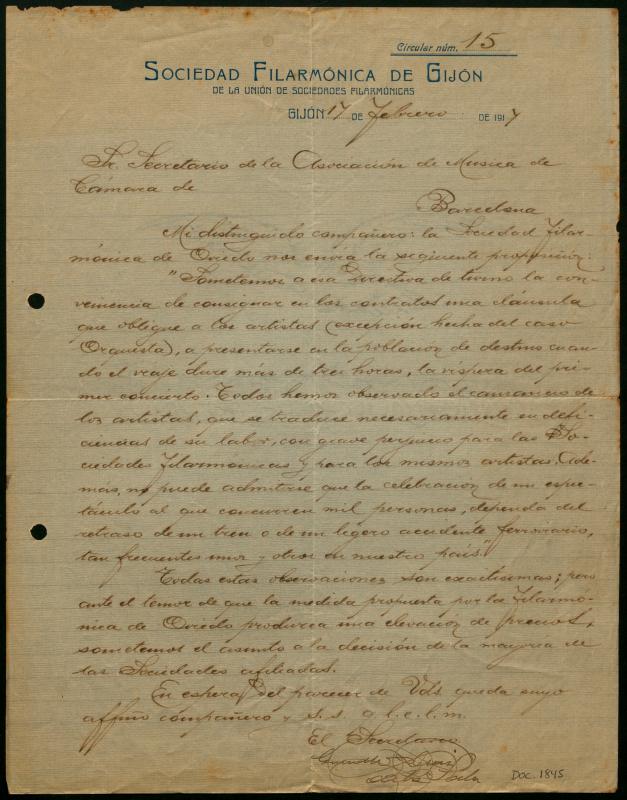 Circular núm. 15
SOCIEDAD FILARMÓNICA DE GIJÓN
DE LA UNIÓN DE SOCIEDADES FILARMÓNICAS
GIJÓN 17 DE febrero DE 1917
Sr. Secretario de la Asociación de Musica de
Cámara de
Barcelona
Mi distinguido compañero: la Sociedad Filar-
mónica de Oviedo nos envia la seguiente proposición:
"Sometemos a esa Directiva de turno la con-
veinencia de consignar en los contratos una cláusula
que obligue a los artistas (excepción hecha del caso
Orquesta), a presentarse en la poblacion de destino cuan-
do el viaje dure más de tres horas, la víspera del pri-
mer concierto. Todos hemos observado el cansancio de
los artistas, que se traduce necesariamente en defi-
ciencias de su labor, con grave perjuicio para las So-
ciedades Filarmónicas y para los mismos artistas. Ade-
más, no puede admitirse que la celebracion de un espec-
táculo al que concurren mil personas, dependa del
retraso de un tren o de un ligero accidente ferroviario,
tan frecuentes unos y otros en nuestro pais."
Todas estas observaciones son exactísimas; pero
ante el temor de que la medida propuesta por la Filarmó-
nica de Oviedo produzca una elevacion de precios,
sometemos el asunto a la decisión de la mayoria de
las Sociedades afiliadas.
En espera del parecer de Vds queda suyo
affmo compañero y s.s. q.l.e.l.m.
El Secretario
DOC. 1845